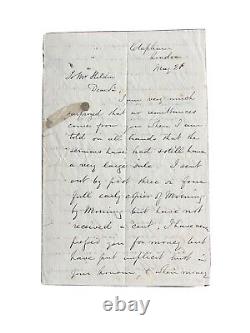 Clapham
London
May 28
To Mr Heldon
Dear Sir
I am very much
surprised that no remittances
comes from you. I am
told on all hands that the
sermons have had & still have
a very large sale. I sent
out by post three or four
full early copies of Morning
by Morning but have not
received a cent. I have never
you for money but
have put implicit trust in
your honour.
money
ebay